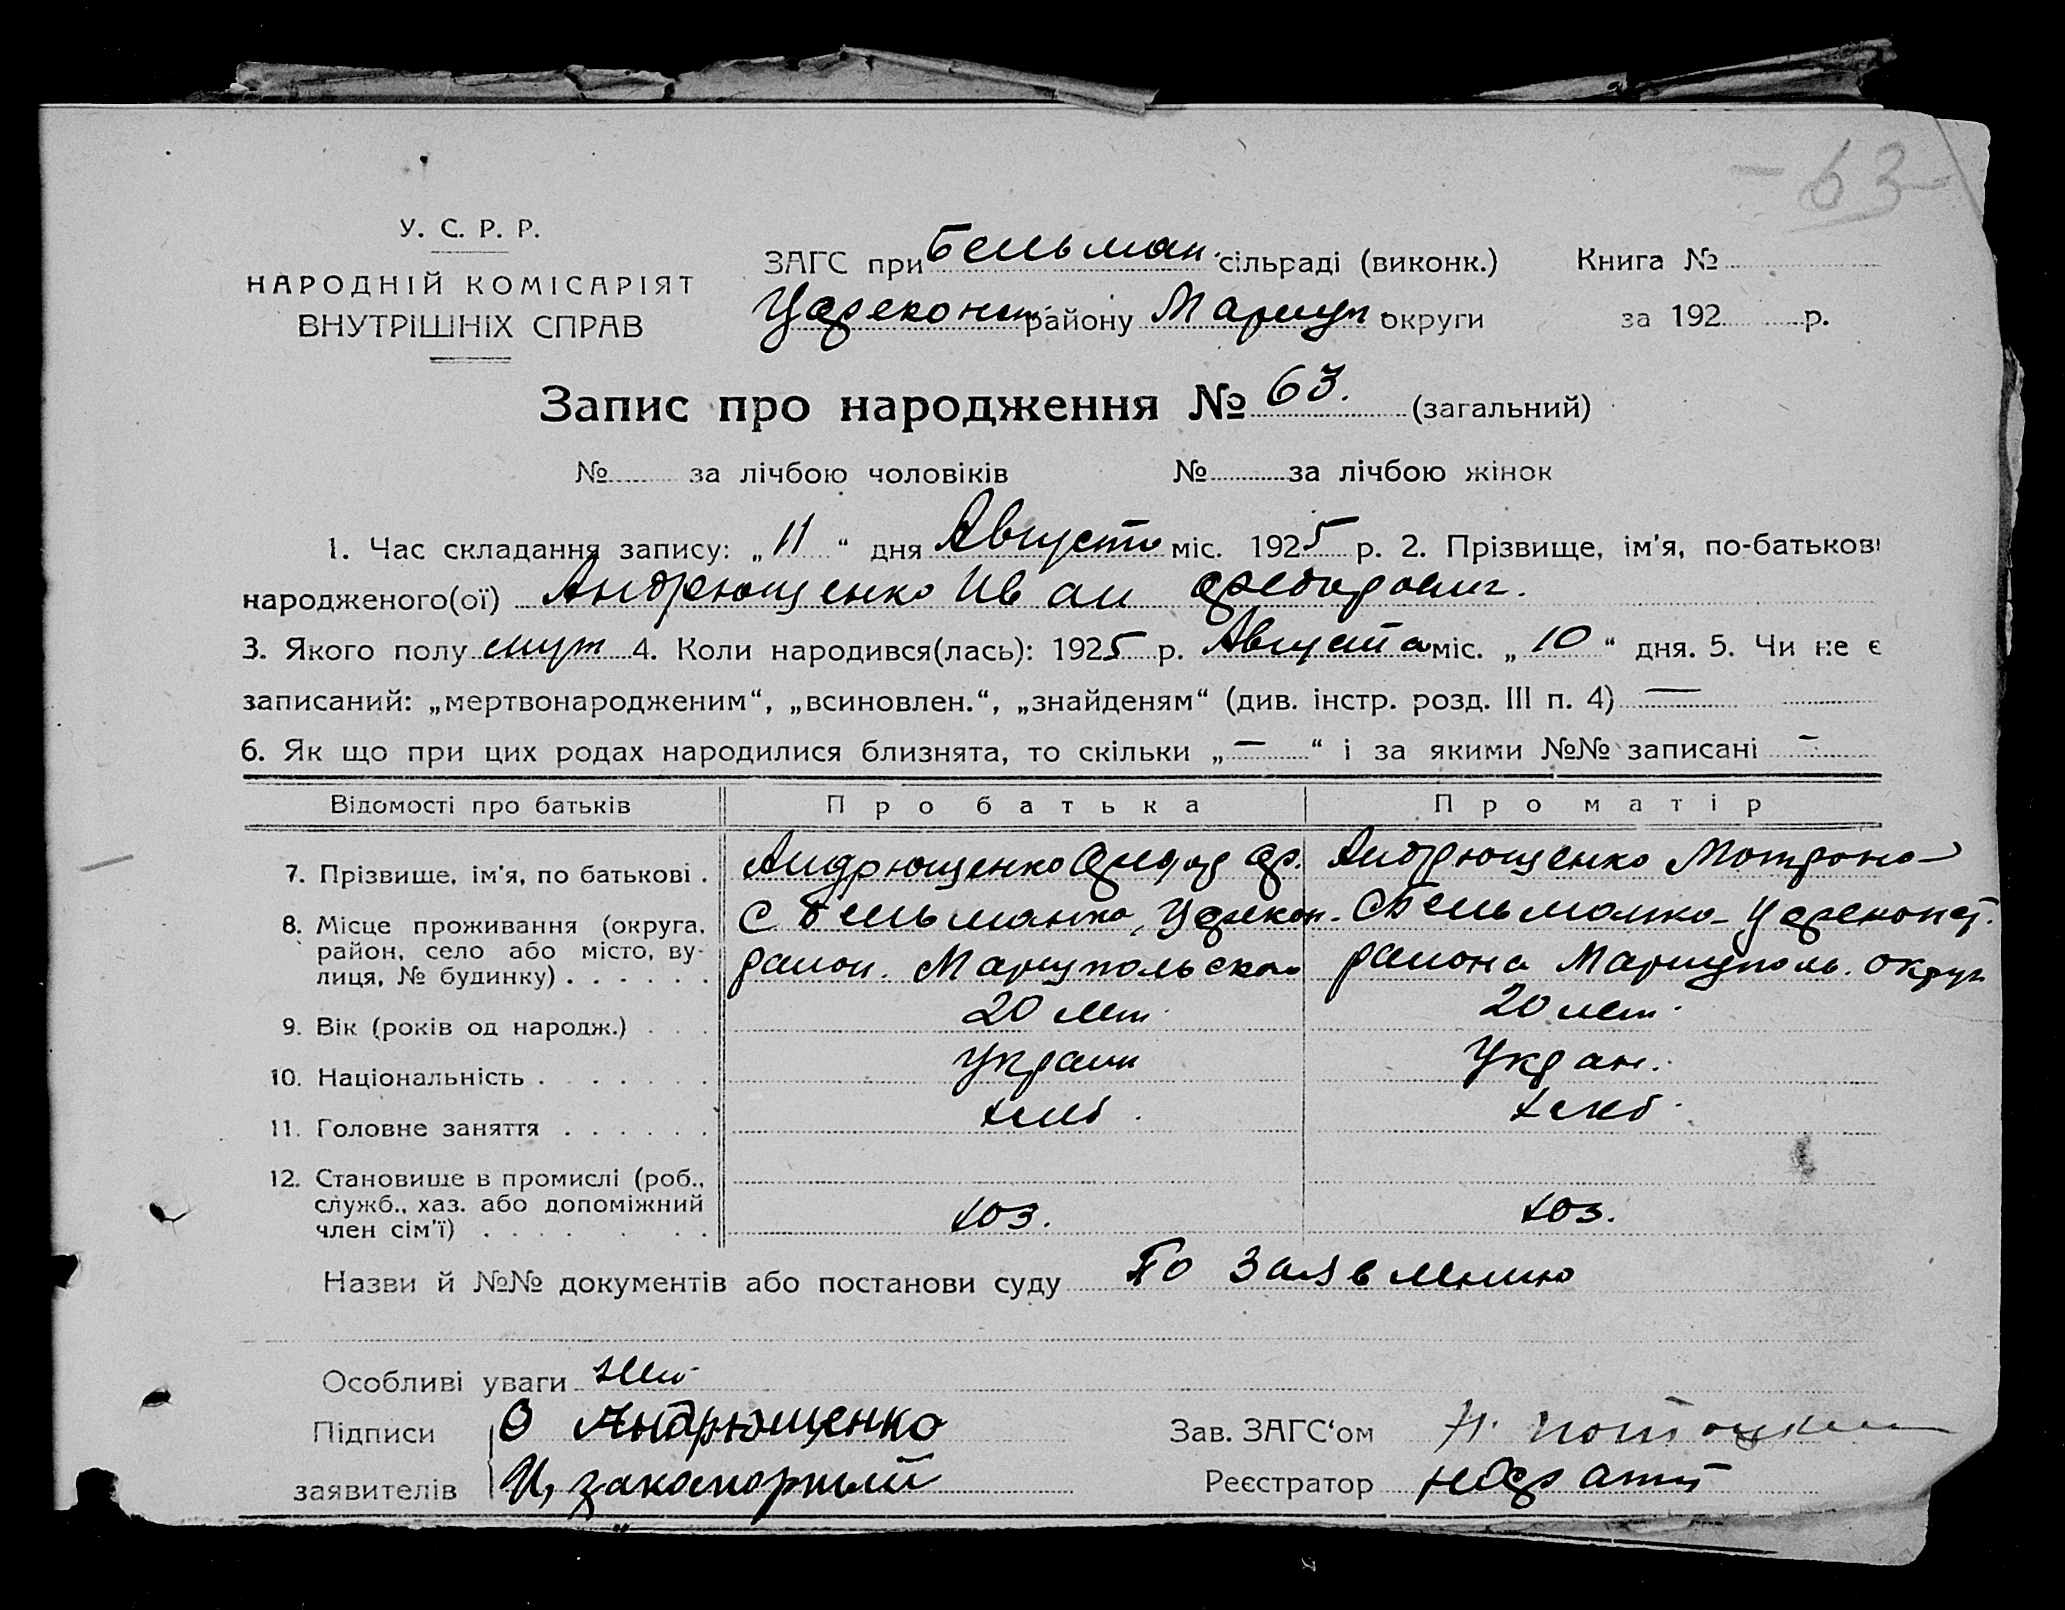 - 63 -
У. С. Р. Р.
НАРОДНІЙ КОМІСАРІЯТ
ВНУТРІШНІХ СПРАВ
ЗАГС при Бельман. сільраді (виконк.) Книга №
Цареконст району Мариуп. округи за 192 р.
Запис про народження № 63. (загальний)
№ за лічбою чоловіків № за лічбою жінок
1. Час складання запису: „11“ дня Августа міс. 1925 р. 2. Прізвище, ім'я, по-батькові
народженого(ої) Андрющенко Иван Федорович.
3. Якого полу муж 4. Коли народився(лась): 1925 р. Августа міс. „10“ дня. 5. Чи не є
записаний: „мертвонародженим“, „всиновлен.“, „знайденям“ (див. інстр. розд. III п. 4) —
6. Як що при цих родах народилися близнята, то скільки „—“ і за якими №№ записані —
Відомості про батьків Про батька Про матір
7. Прізвище, ім'я, по батькові . Андрющенко Федор Ф. Андрющенко Мотрона
8. Місце проживання (округа, С Бельманка, Цареконст. С Бельманка Цареконст.
район, село або місто, ву-
лиця, № будинку) . . . . . . район. Мариупольской района Мариуполь. округ
9. Вік (років од народж.) . . . 20 лет 20 лет.
10. Національність . . . . . . . Украин Украи.
11. Головне заняття . . . . . . хлеб. хлеб.
12. Становище в промислі (роб.,
служб., хаз. або допоміжний
член сім'ї) . . . . . . . хоз. хоз.
Назви й №№ документів або постанови суду По заявлению
Особливі уваги нет
Підписи Ѳ Андрющенко Зав. ЗАГС‘ом Н.
заявителів И, Реєстратор